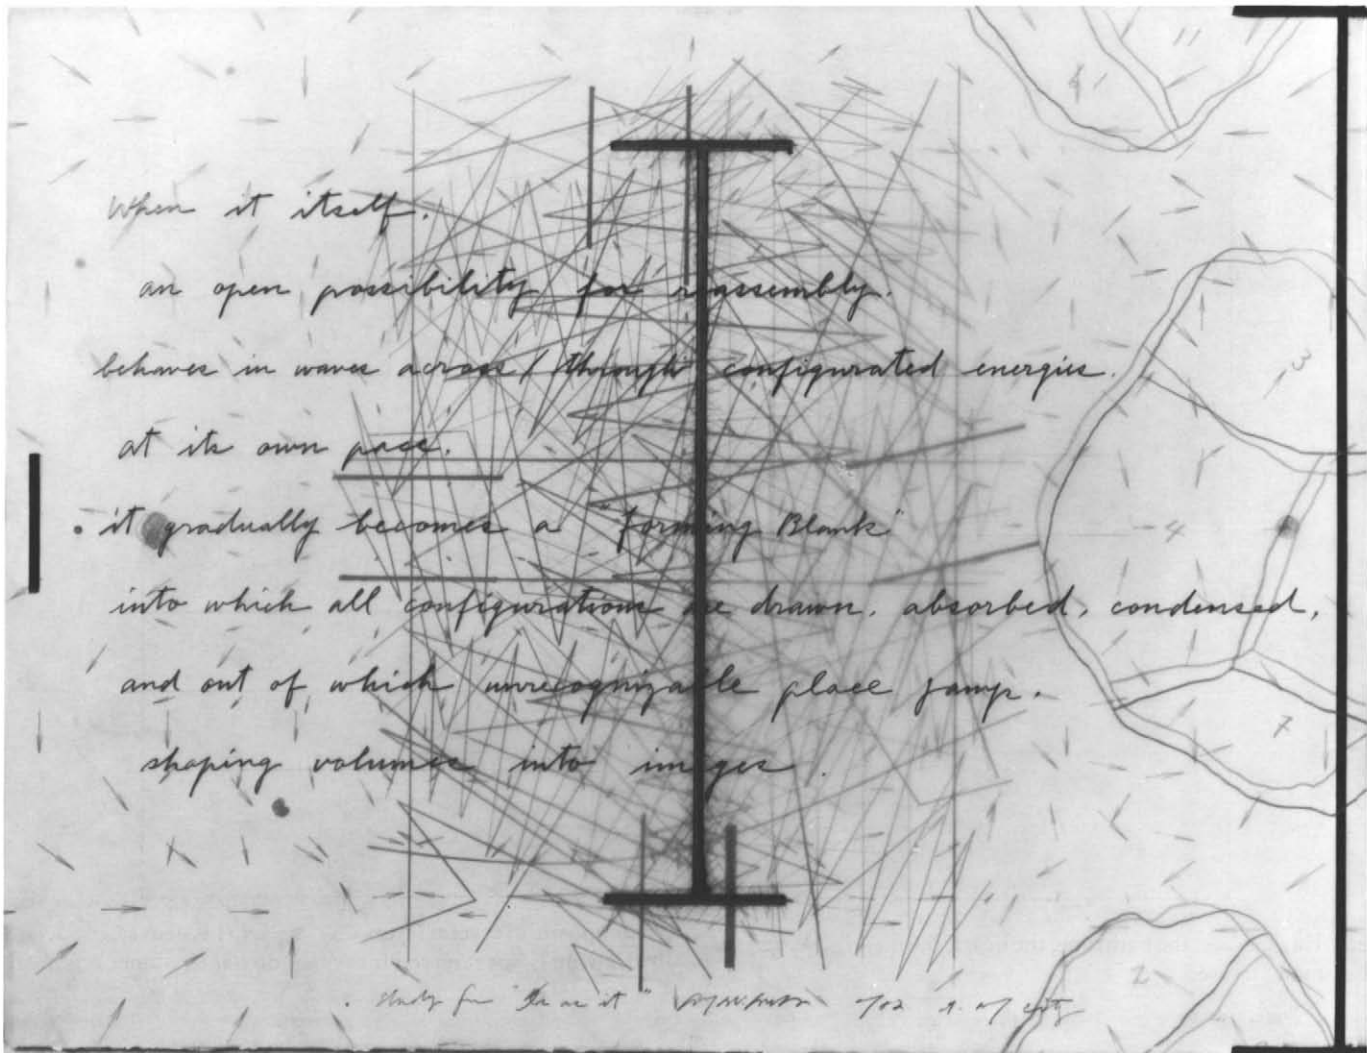 11
3
When it itself.
an open possibility for reassembly.
behaves in waves across / through configurated energies.
at its own pace.
4
. it gradually becomes a "forming Blank"
into which all configurations are drawn, absorbed, condensed,
and out of which unrecognizable place jump.
7
shaping volumes into images.
2
. study for "Is as it"